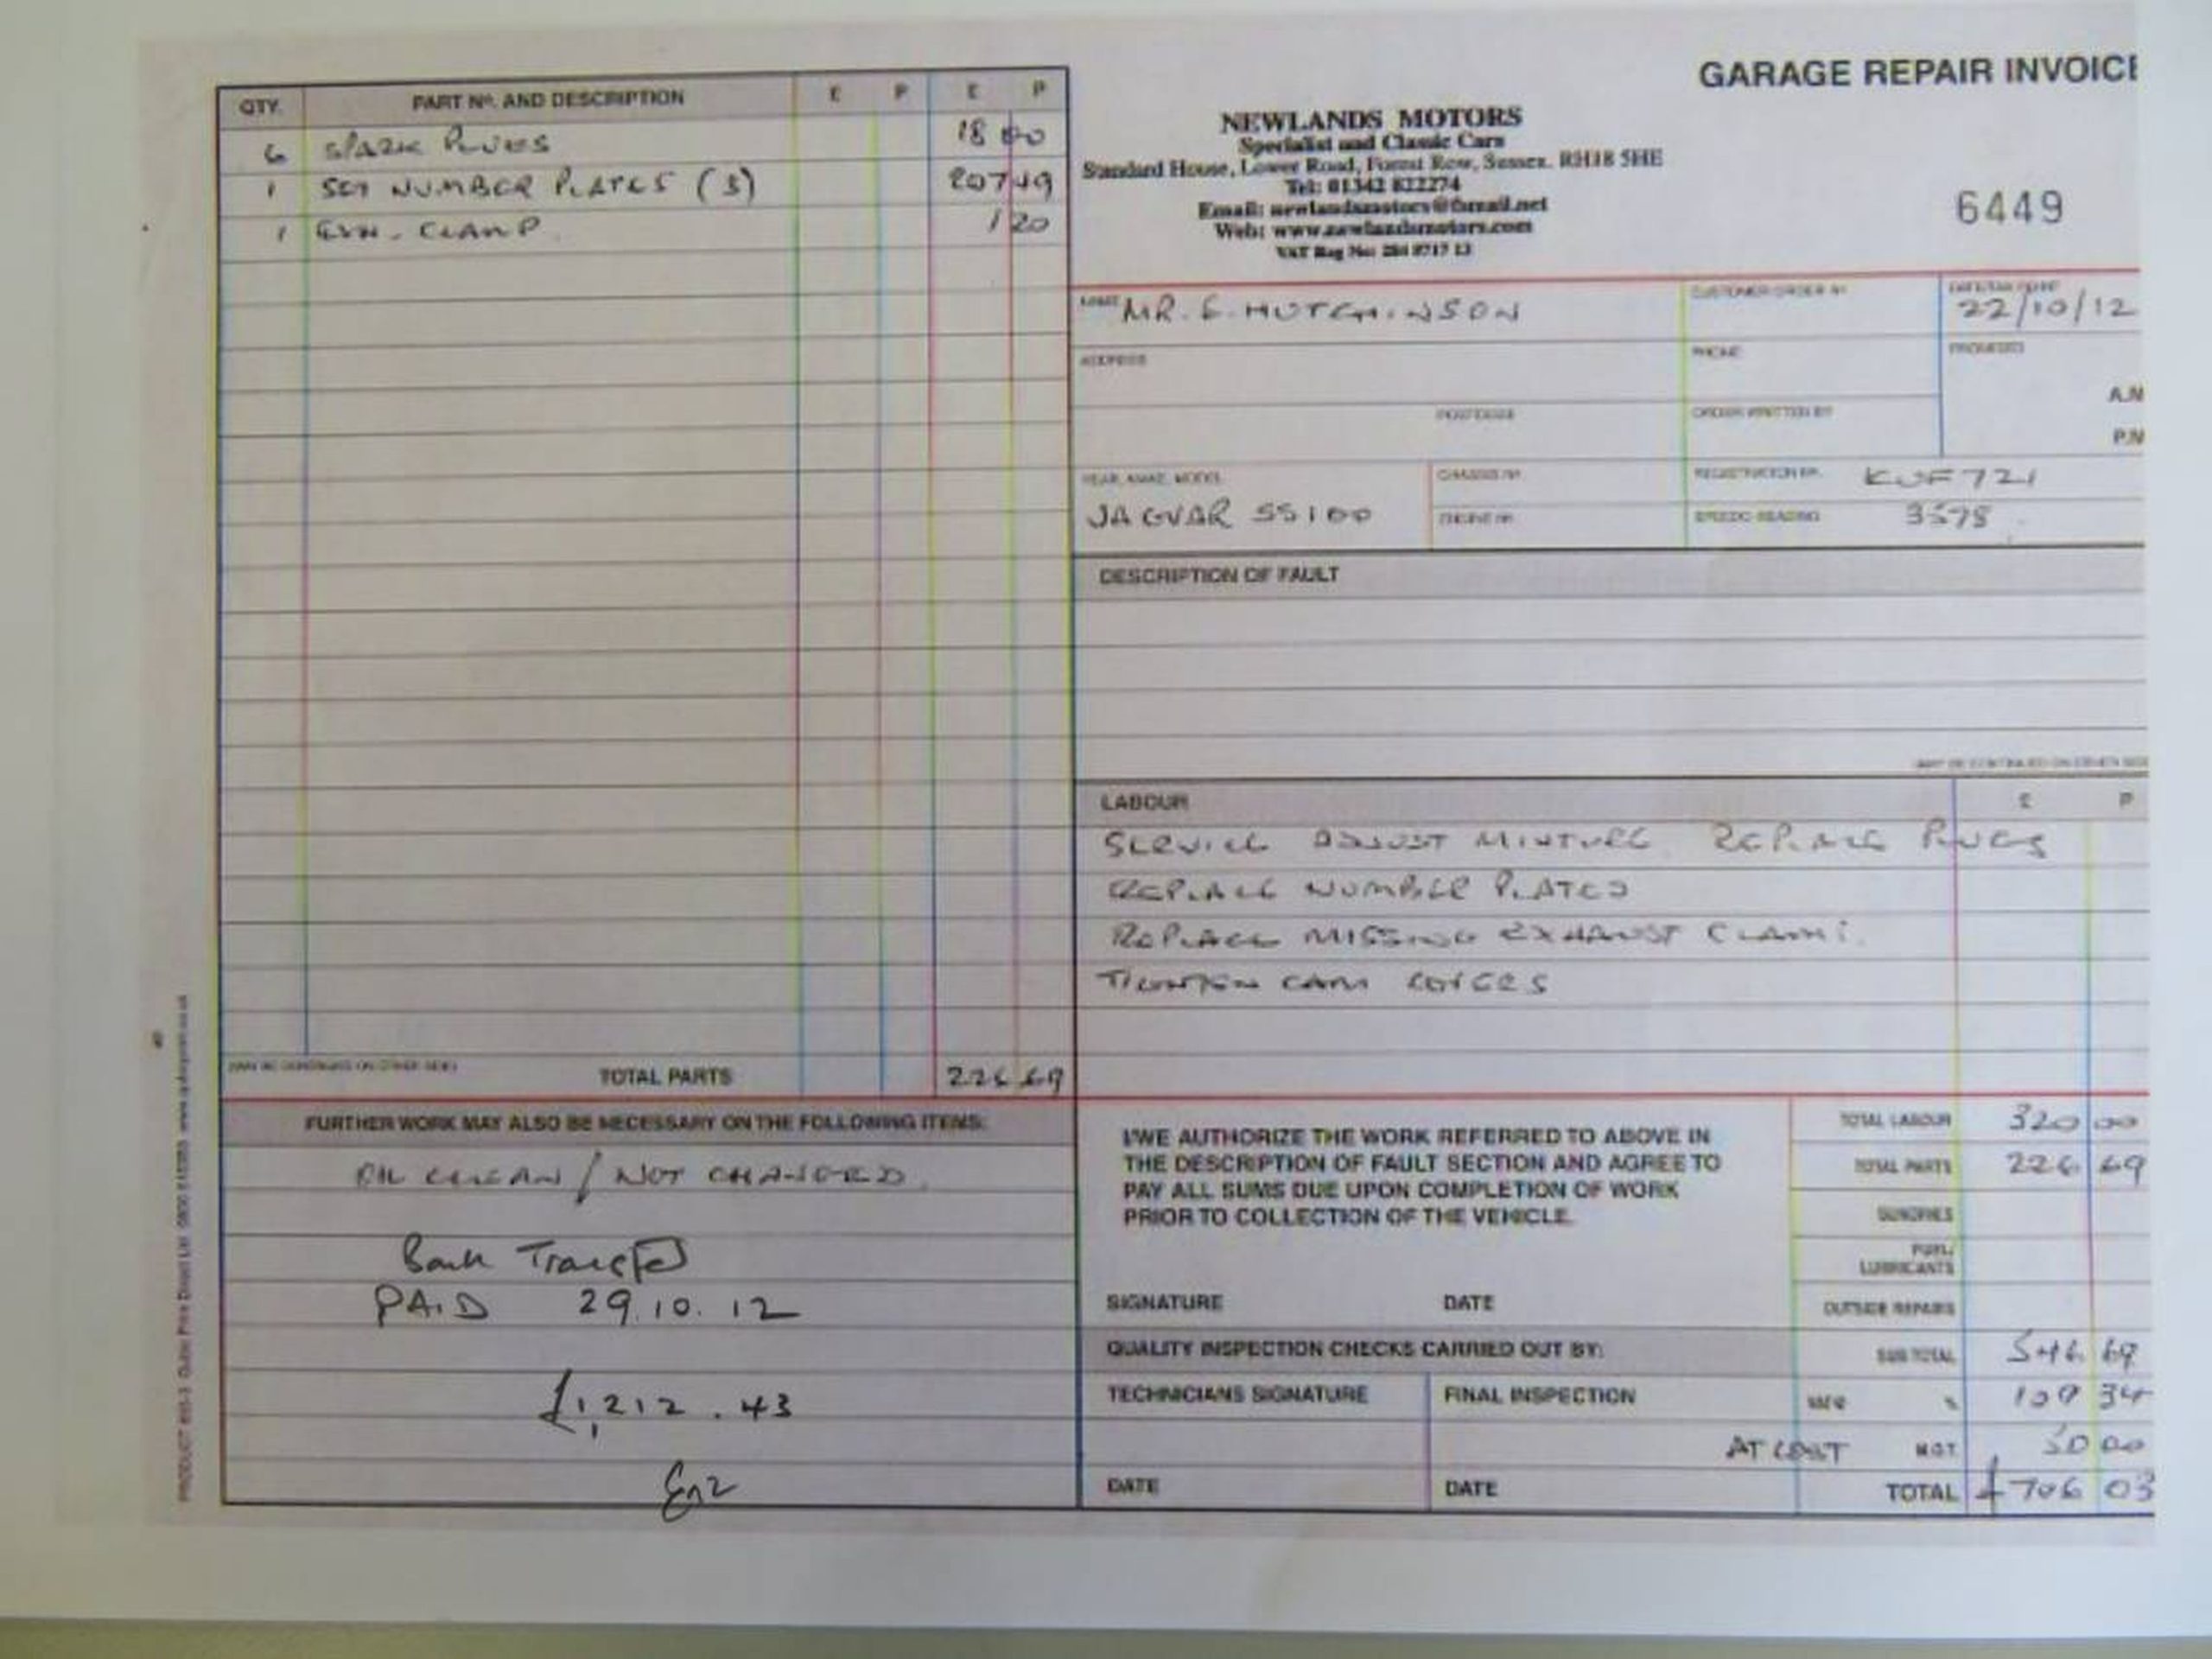 GARAGE REPAIR INVOICE
QTY. PART Nº. AND DESCRIPTION £ P £ P
6 SPARK PLUGS 18 00
1 SET NUMBER PLATES (3) 207 49
1 EXH. CLAMP 1 20
TOTAL PARTS 226 69
FURTHER WORK MAY ALSO BE NECESSARY ON THE FOLLOWING ITEMS:
OIL CLEAN / NOT CHANGED.
Bank Transfer
PAID 29.10.12
£1,212.43
NEWLANDS MOTORS
Specialist and Classic Cars
Standard House, Lower Road, Forest Row, Sussex. RH18 5HE
Tel: 01342 822274
Email: newlandsmotors@
Web: www.newlandsmotors.com
VAT Reg No:
6449
NAME MR. E. HUTCHINSON
CUSTOMER ORDER Nº
DATE/TAX POINT
22/10/12
ADDRESS
PHONE
PROMISED
A.M
POSTCODE
ORDER WRITTEN BY
P.M
YEAR, MAKE, MODEL
JAGUAR SS100
CHASSIS Nº
ENGINE Nº
REGISTRATION Nº. KUF 721
SPEEDO READING 3578
DESCRIPTION OF FAULT
LABOUR £ P
SERVICE ADJUST MIXTURE REPLACE PLUGS
REPLACE NUMBER PLATES
REPLACE MISSING EXHAUST CLAMP.
TIGHTEN CAM COVERS
I/WE AUTHORIZE THE WORK REFERRED TO ABOVE IN
THE DESCRIPTION OF FAULT SECTION AND AGREE TO
PAY ALL SUMS DUE UPON COMPLETION OF WORK
PRIOR TO COLLECTION OF THE VEHICLE.
SIGNATURE DATE
TOTAL LABOUR 320 00
TOTAL PARTS 226 69
SUNDRIES
FUEL/
LUBRICANTS
OUTSIDE REPAIRS
QUALITY INSPECTION CHECKS CARRIED OUT BY:
SUB TOTAL 546 69
TECHNICIANS SIGNATURE FINAL INSPECTION
VAT @ % 109 34
AT COST MOT 50 00
DATE DATE
TOTAL £706 03